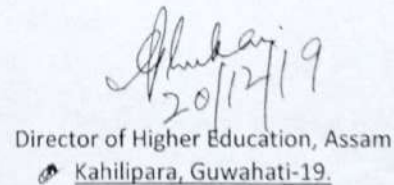 20/12/19
Director of Higher Education, Assam
Kahilipara, Guwahati-19.